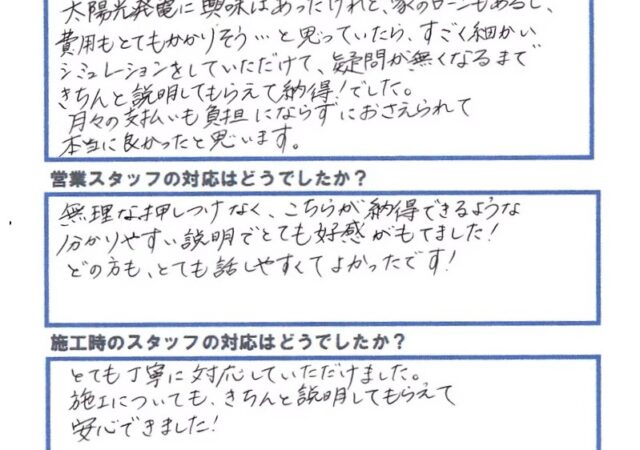 太陽光発電に興味はあったけれど、家のローンもあるし、
費用もとてもかかりそう…と思っていたら、すごく細かい
シミュレーションをしていただけて、疑問が無くなるまで
きちんと説明してもらえて納得!でした。
月々の支払いも負担にならずにおさえられて
本当に良かったと思います。
営業スタッフの対応はどうでしたか?
無理な押しつけなく、こちらが納得できるような
分かりやすい説明でとても好感がもてました!
どの方も、とても話しやすくてよかったです!
施工時のスタッフの対応はどうでしたか?
とても丁寧に対応していただけました。
施工についても、きちんと説明してもらえて
安心できました!